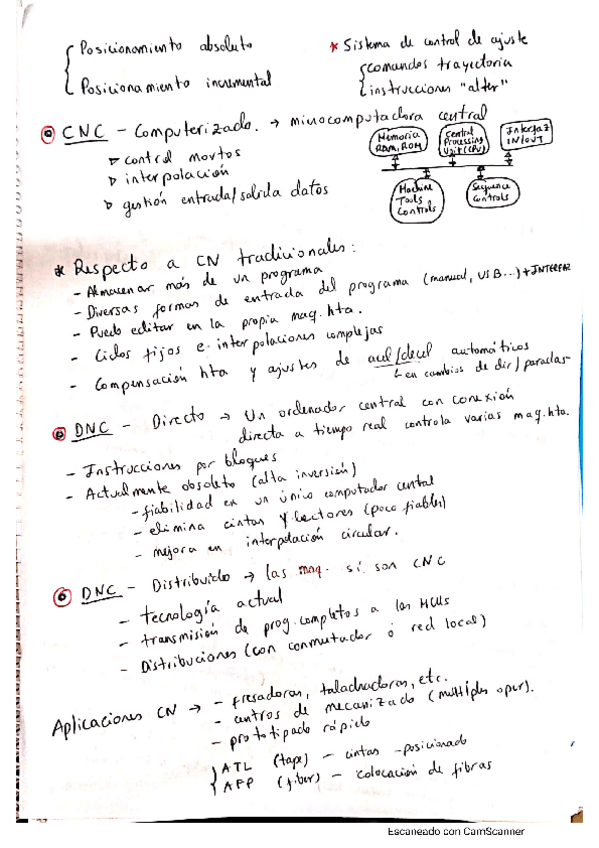 Posicionamiento absoluto
Posicionamiento incremental
* Sistema de control de ajuste
comandos trayectoria
instrucciones "alter"
CNC - Computerizado. → microcomputadora central
▷ control movtos
▷ interpolación
▷ gestión entrada/salida datos
Memoria RAM, ROM
Central Processing Unit (CPU)
Interfaz IN/OUT
Machine Tools Controls
Sequence Controls
* Respecto a CN tradicionales:
- Almacenar más de un programa
- Diversas formas de entrada del programa (manual, USB...) + INTERFAZ
- Puedo editar en la propia maq. hta.
- Ciclos fijos e interpolaciones complejas
- Compensación hta y ajustes de acel/decel automáticos
en cambios de dir/paradas
DNC - Directo → Un ordenador central con conexión
directa a tiempo real controla varias maq. hta.
- Instrucciones por bloques
- Actualmente obsoleto (alta inversión)
- fiabilidad en un único computador central
- elimina cintas y lectores (poco fiables)
- mejora en interpolación circular.
DNC - Distribuido → las maq. sí son CNC
- tecnología actual
- transmisión de prog. completos a las MCUs
- Distribuciones (con conmutador ó red local)
Aplicaciones CN → - fresadoras, taladradoras, etc.
- centros de mecanizado (múltiples oper).
- prototipado rápido
ATL (tape) - cintas - posicionado
AFP (fiber) - colocación de fibras
Escaneado con CamScanner